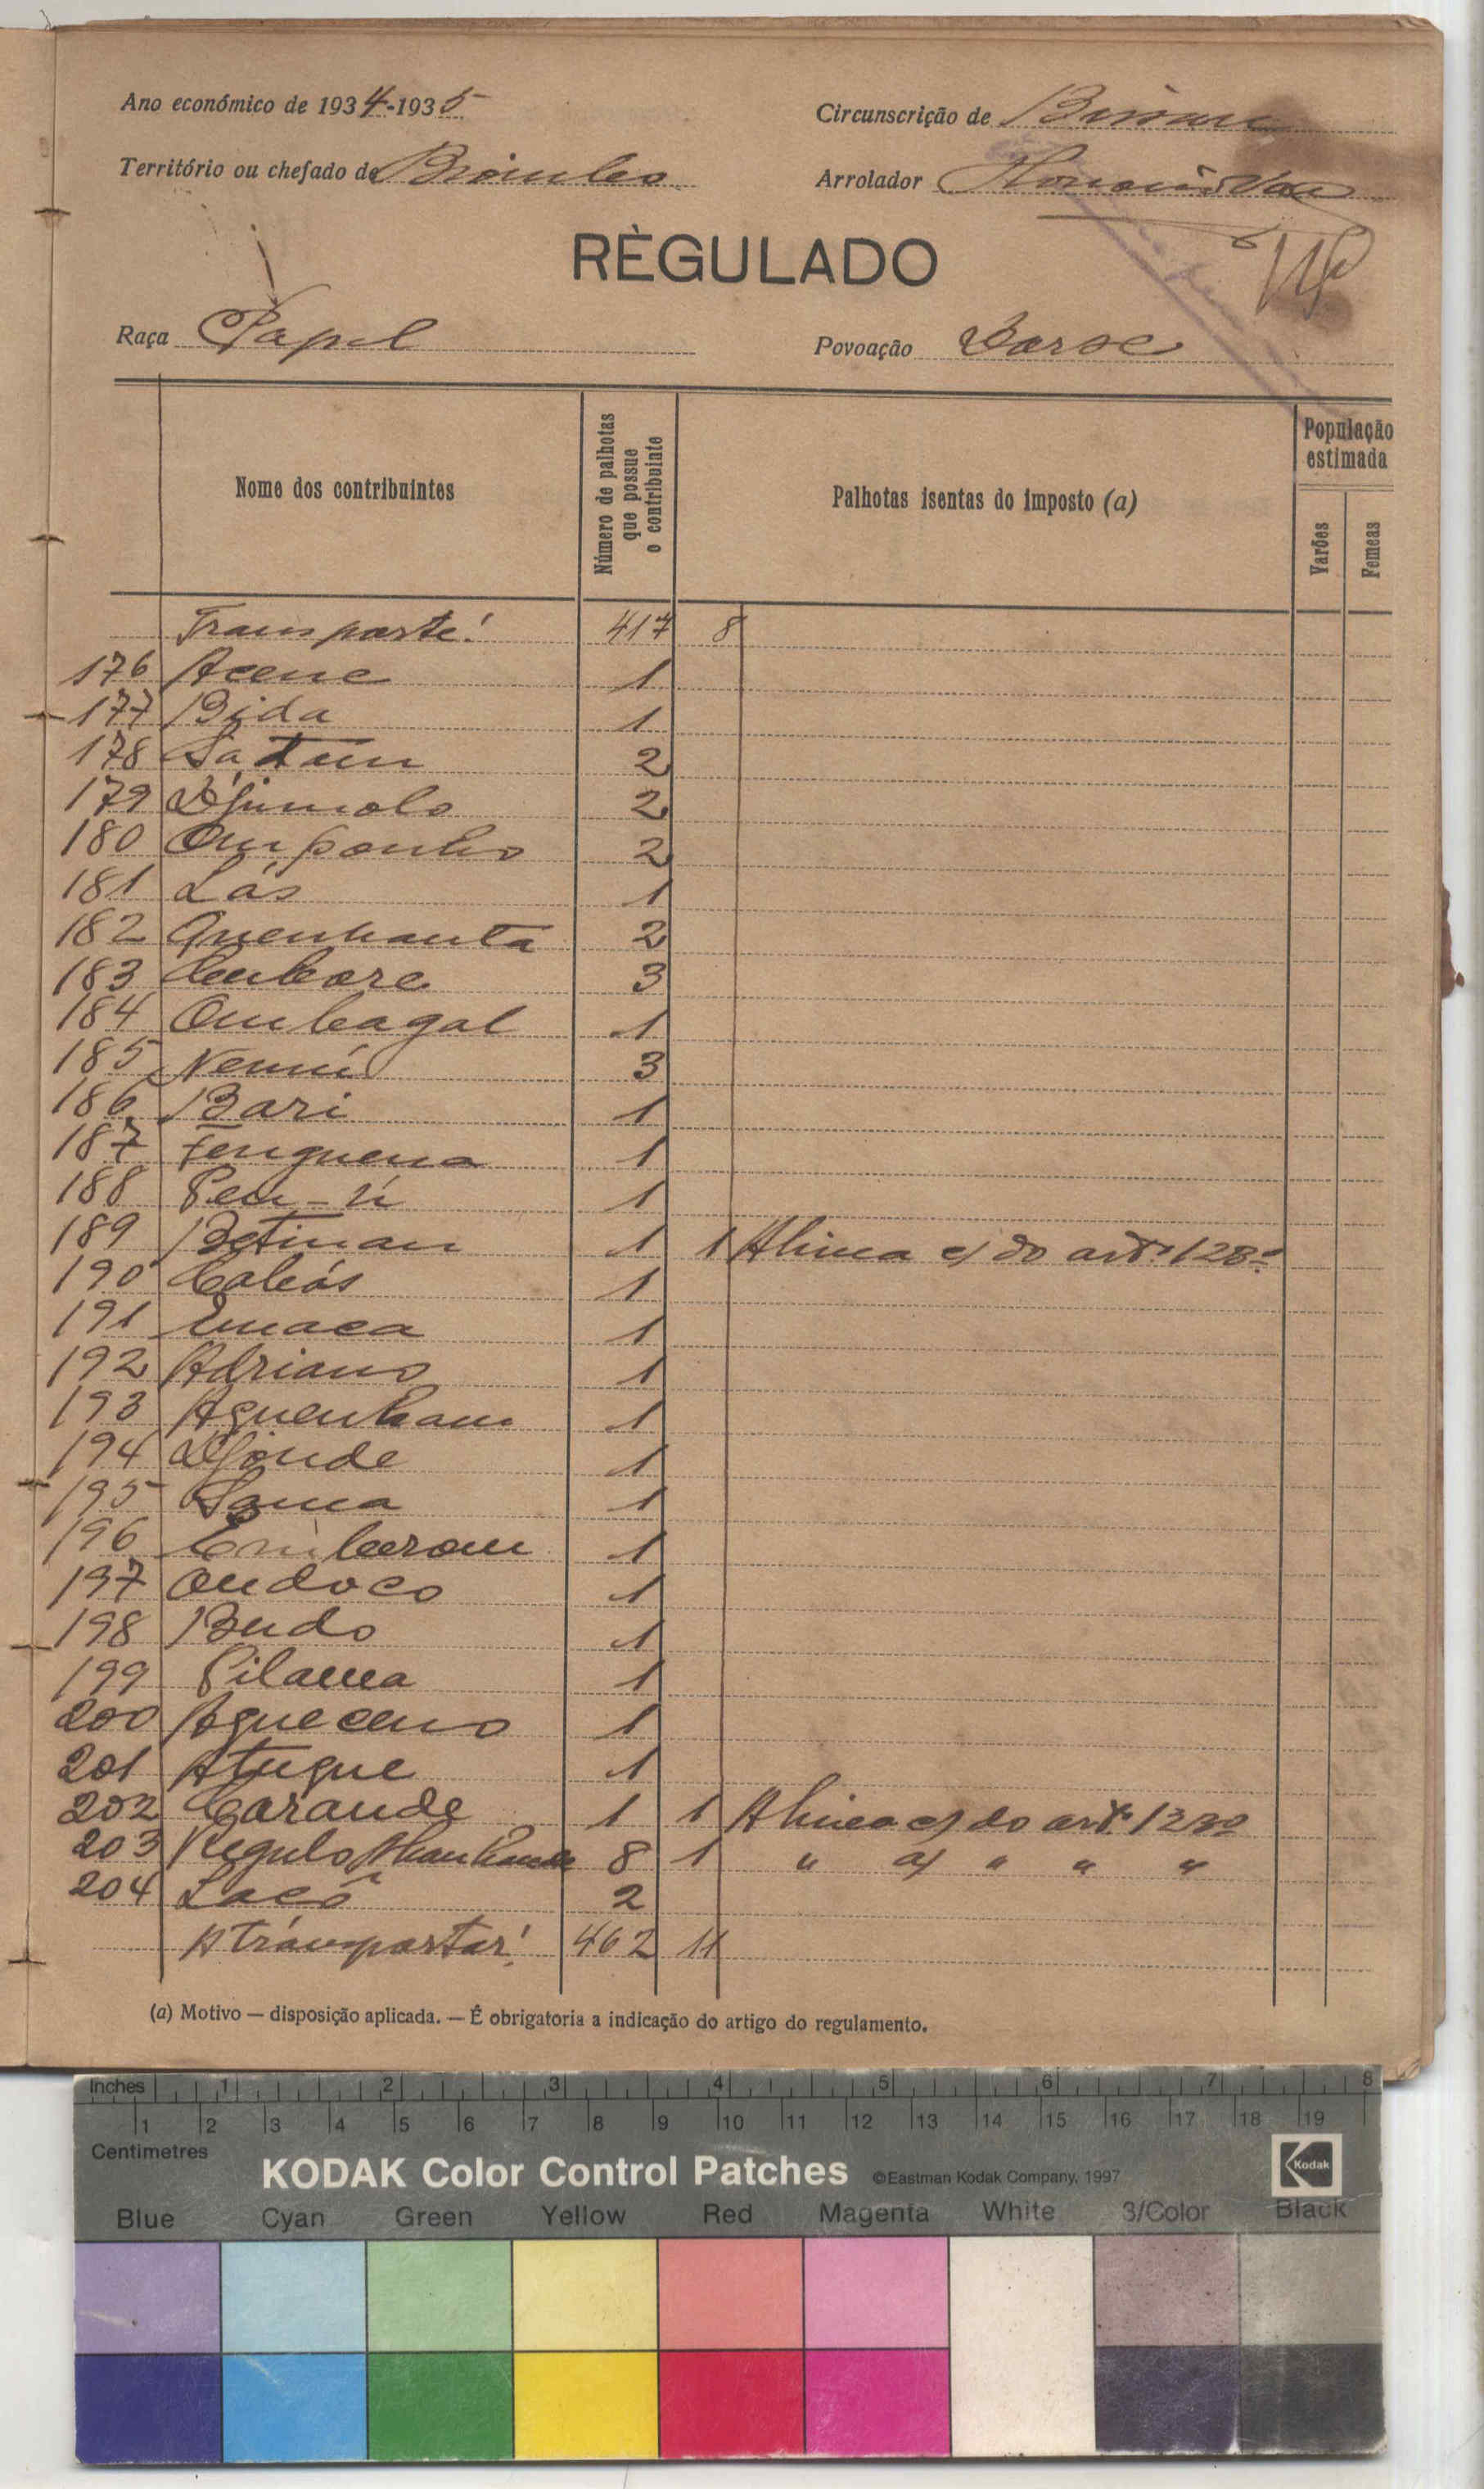 Ano económico de 1934-1935
Circunscrição de Bissau
Território ou chefado de
Arrolador
RÈGULADO
Raça Papel
Povoação
Nome dos contribuintes
Número de palhotas que possue o contribuinte
Palhotas isentas do imposto (a)
População estimada
Varões
Femeas
Transporte! 417 8
176 Acene 1
177 Bida 1
178 Sa tum 2
179 Djumolo 2
180 Om ponho 2
181 Lás 1
182 Quenhanta 2
183 3
184 Ombagal 1
185 3
186 Bari 1
187 Fenguena 1
188 1
189 Betiman 1 1 Alinea c) do artº 123º
190 1
191 Emaca 1
192 Adriano 1
193 Aguenham 1
194 Djonde 1
195 Sama 1
196 1
197 Ondoco 1
198 Budo 1
199 Pilama 1
200 Agueceno 1
201 Atugue 1
202 Carande 1 1 Alinea c) do artº 123º
203 Regulo 8 1 " a) " " "
204 Lacô 2
A transportar! 462 11
(a) Motivo — disposição aplicada. — É obrigatoria a indicação do artigo do regulamento.
Inches 1 2 3 4 5 6 7 8
1 2 3 4 5 6 7 8 9 10 11 12 13 14 15 16 17 18 19
Centimetres
KODAK Color Control Patches ©Eastman Kodak Company, 1997 Kodak
Blue Cyan Green Yellow Red Magenta White 3/Color Black